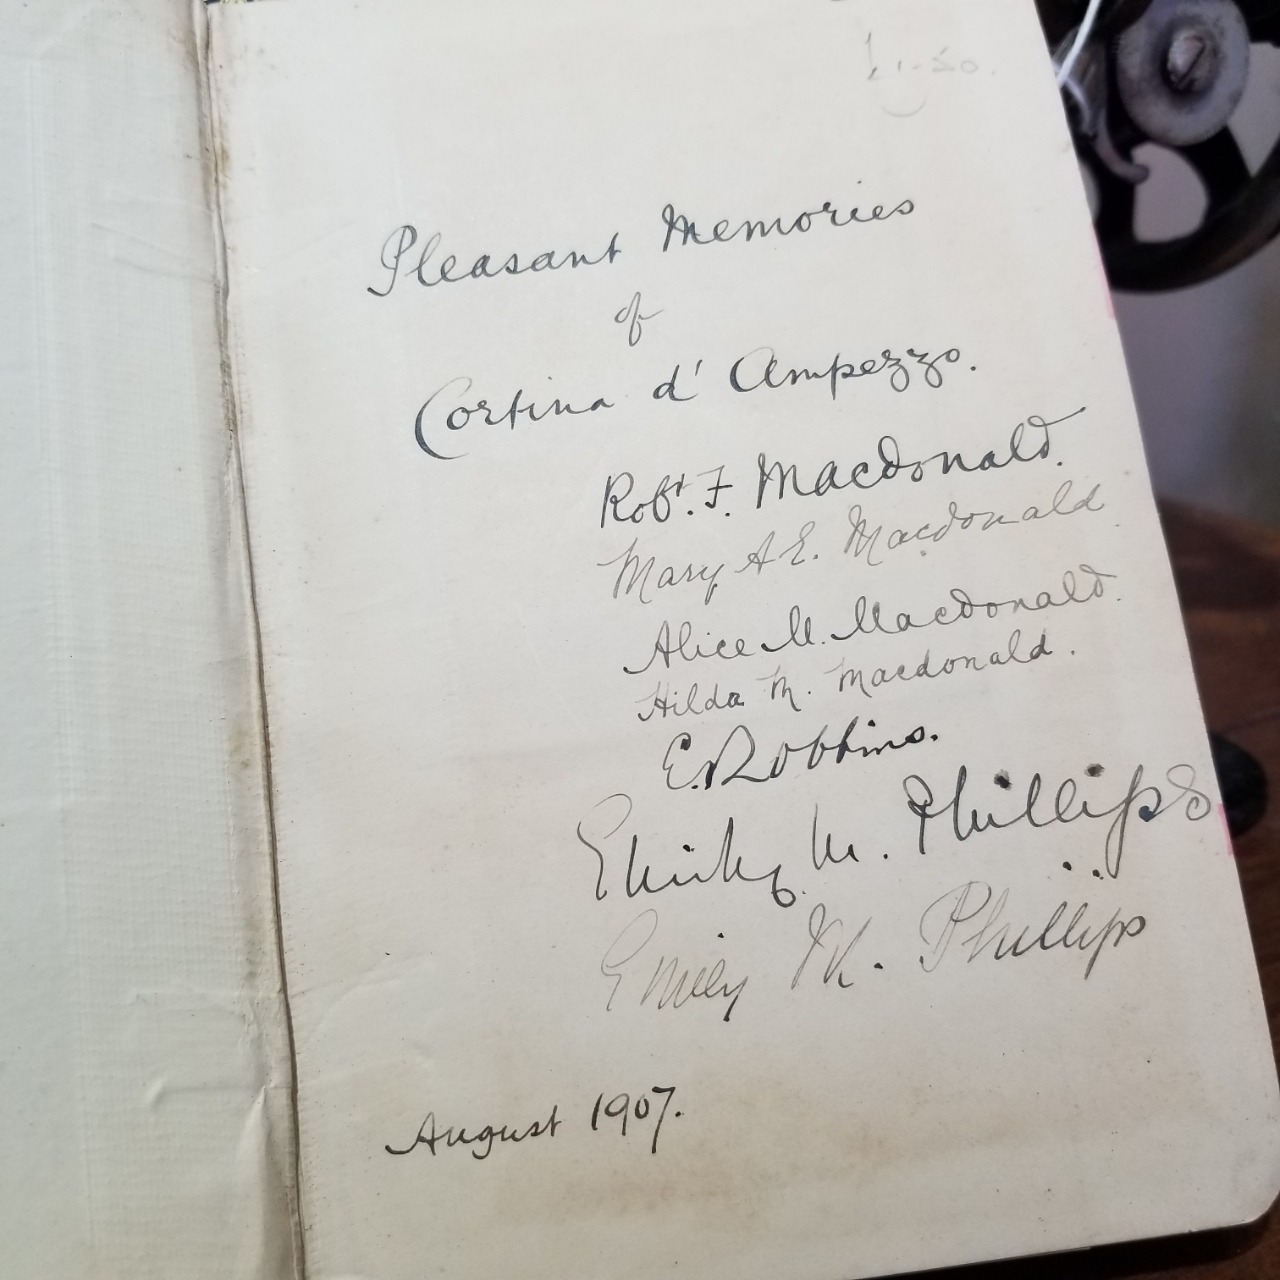 Pleasant Memories
of
Cortina d' Ampezzo.
Robt. F. Macdonald.
Mary A E. Macdonald
Alice M. Macdonald.
Hilda M. Macdonald.
E. Robbins.
M. Phillips
Emily M. Phillips
August 1907.